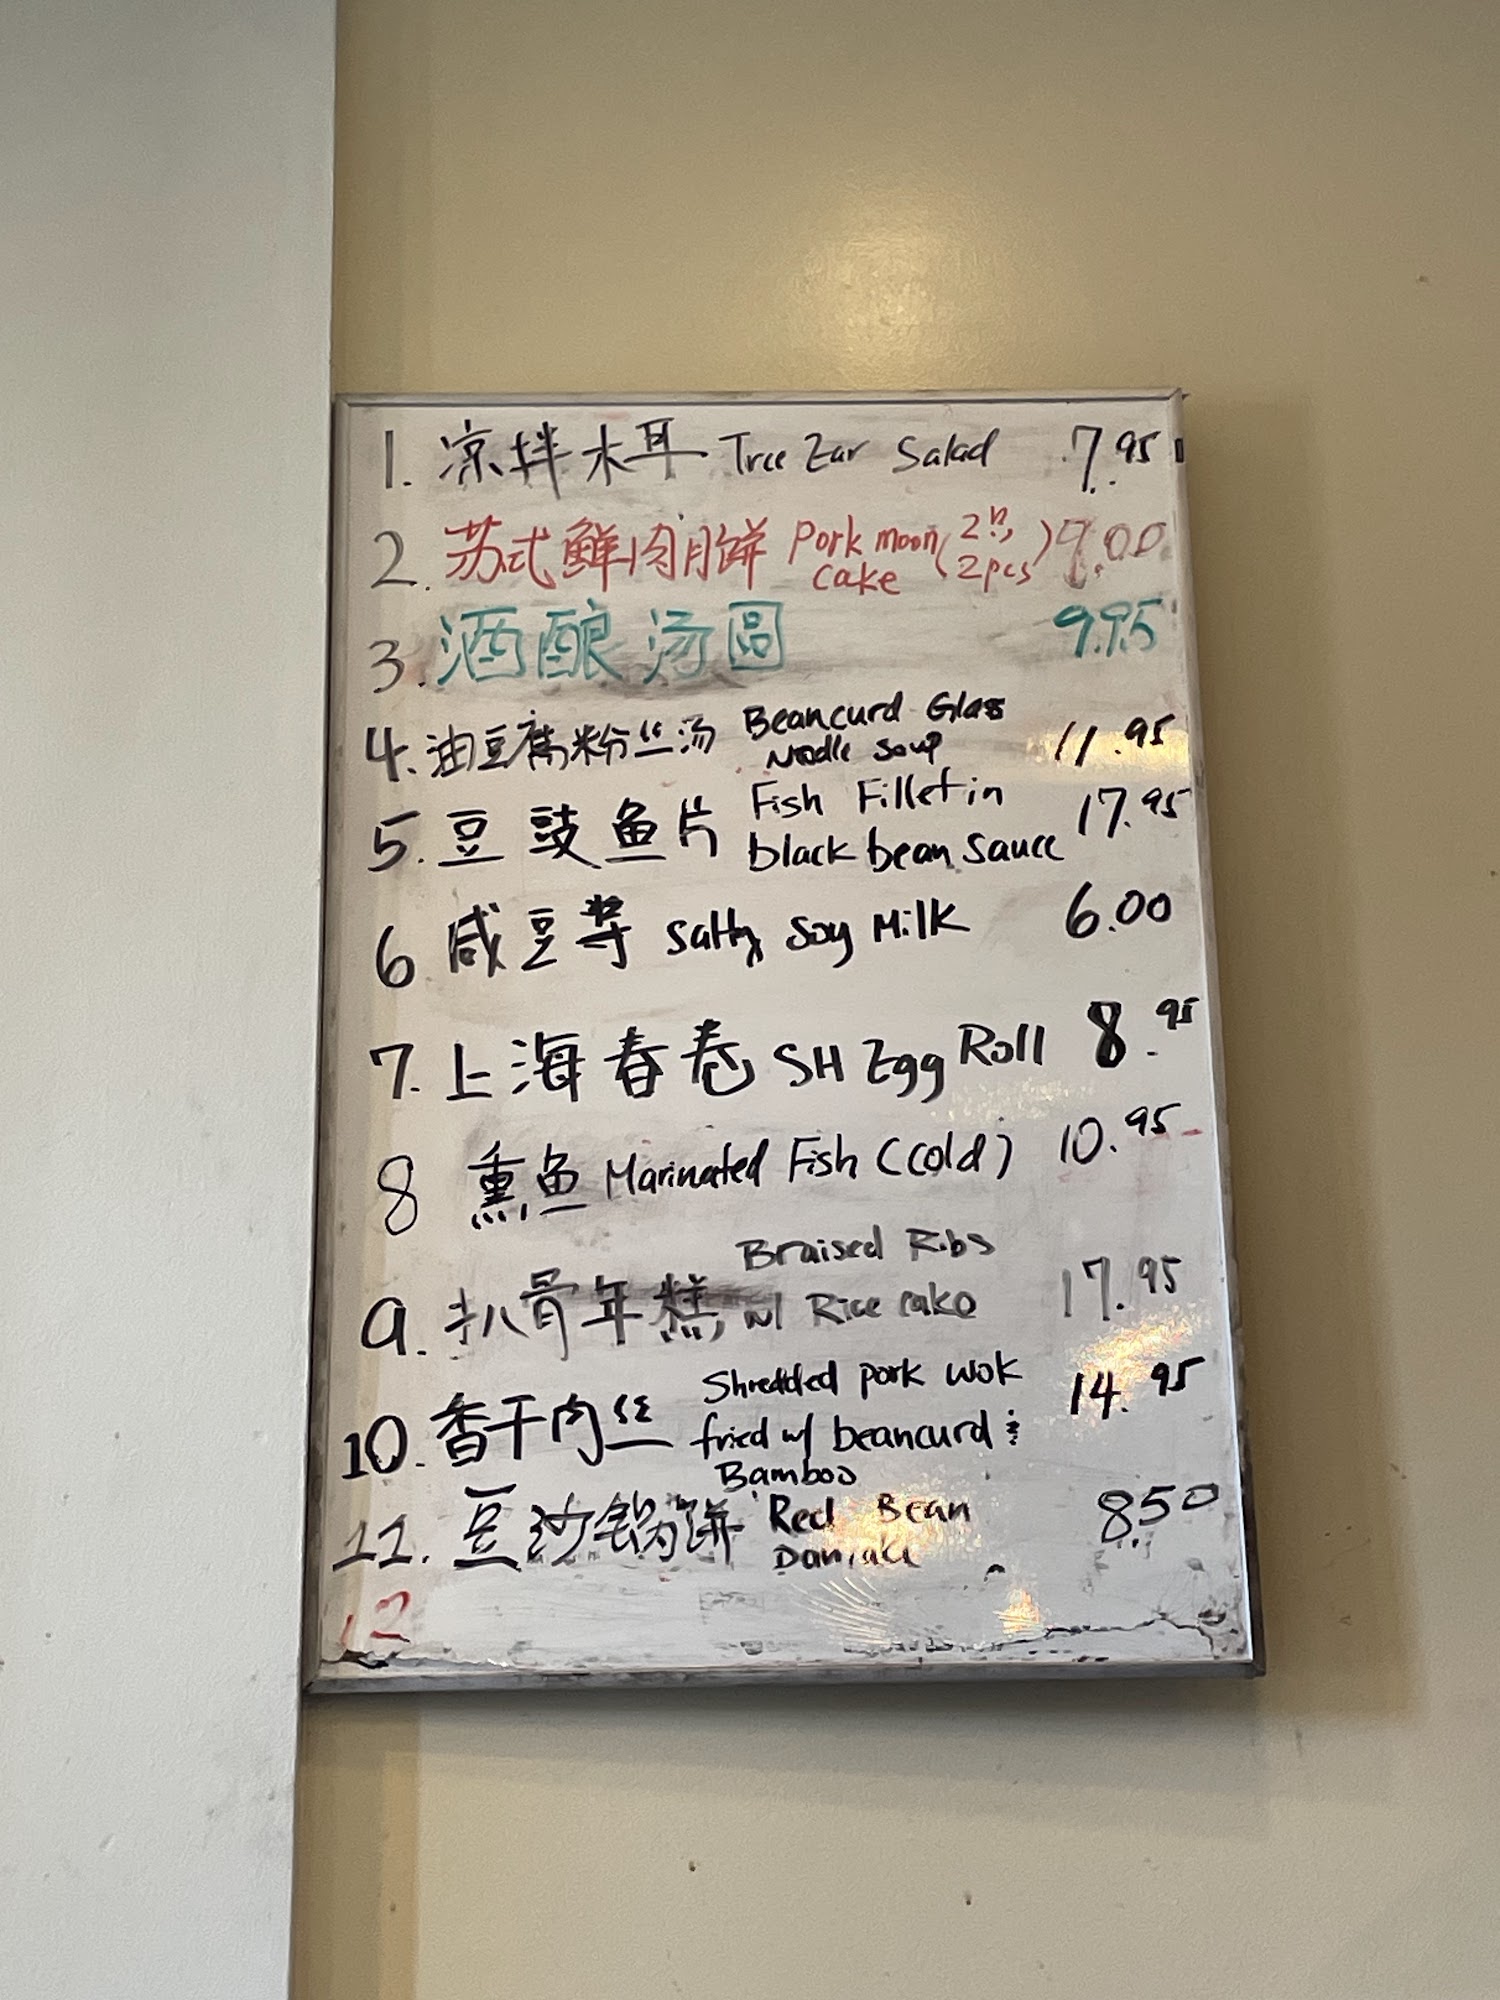 1. 凉拌木耳 Tree Ear Salad 7.95
2. 苏式鲜肉月饼 Pork moon cake (2只, 2pcs) 9.00
3. 酒酿汤圆 9.95
4. 油豆腐粉丝汤 Beancurd Glass Noodle Soup 11.95
5. 豆豉鱼片 Fish Fillet in black bean Sauce 17.95
6 咸豆浆 Salty Soy Milk 6.00
7. 上海春卷 SH Egg Roll 8.95
8 熏鱼 Marinated Fish (cold) 10.95
9. 扒骨年糕 Braised Ribs w/ Rice cake 17.95
10. 香干肉丝 Shredded pork wok fried w/ beancurd & Bamboo 14.95
11. 豆沙锅饼 Red Bean 8.50
12